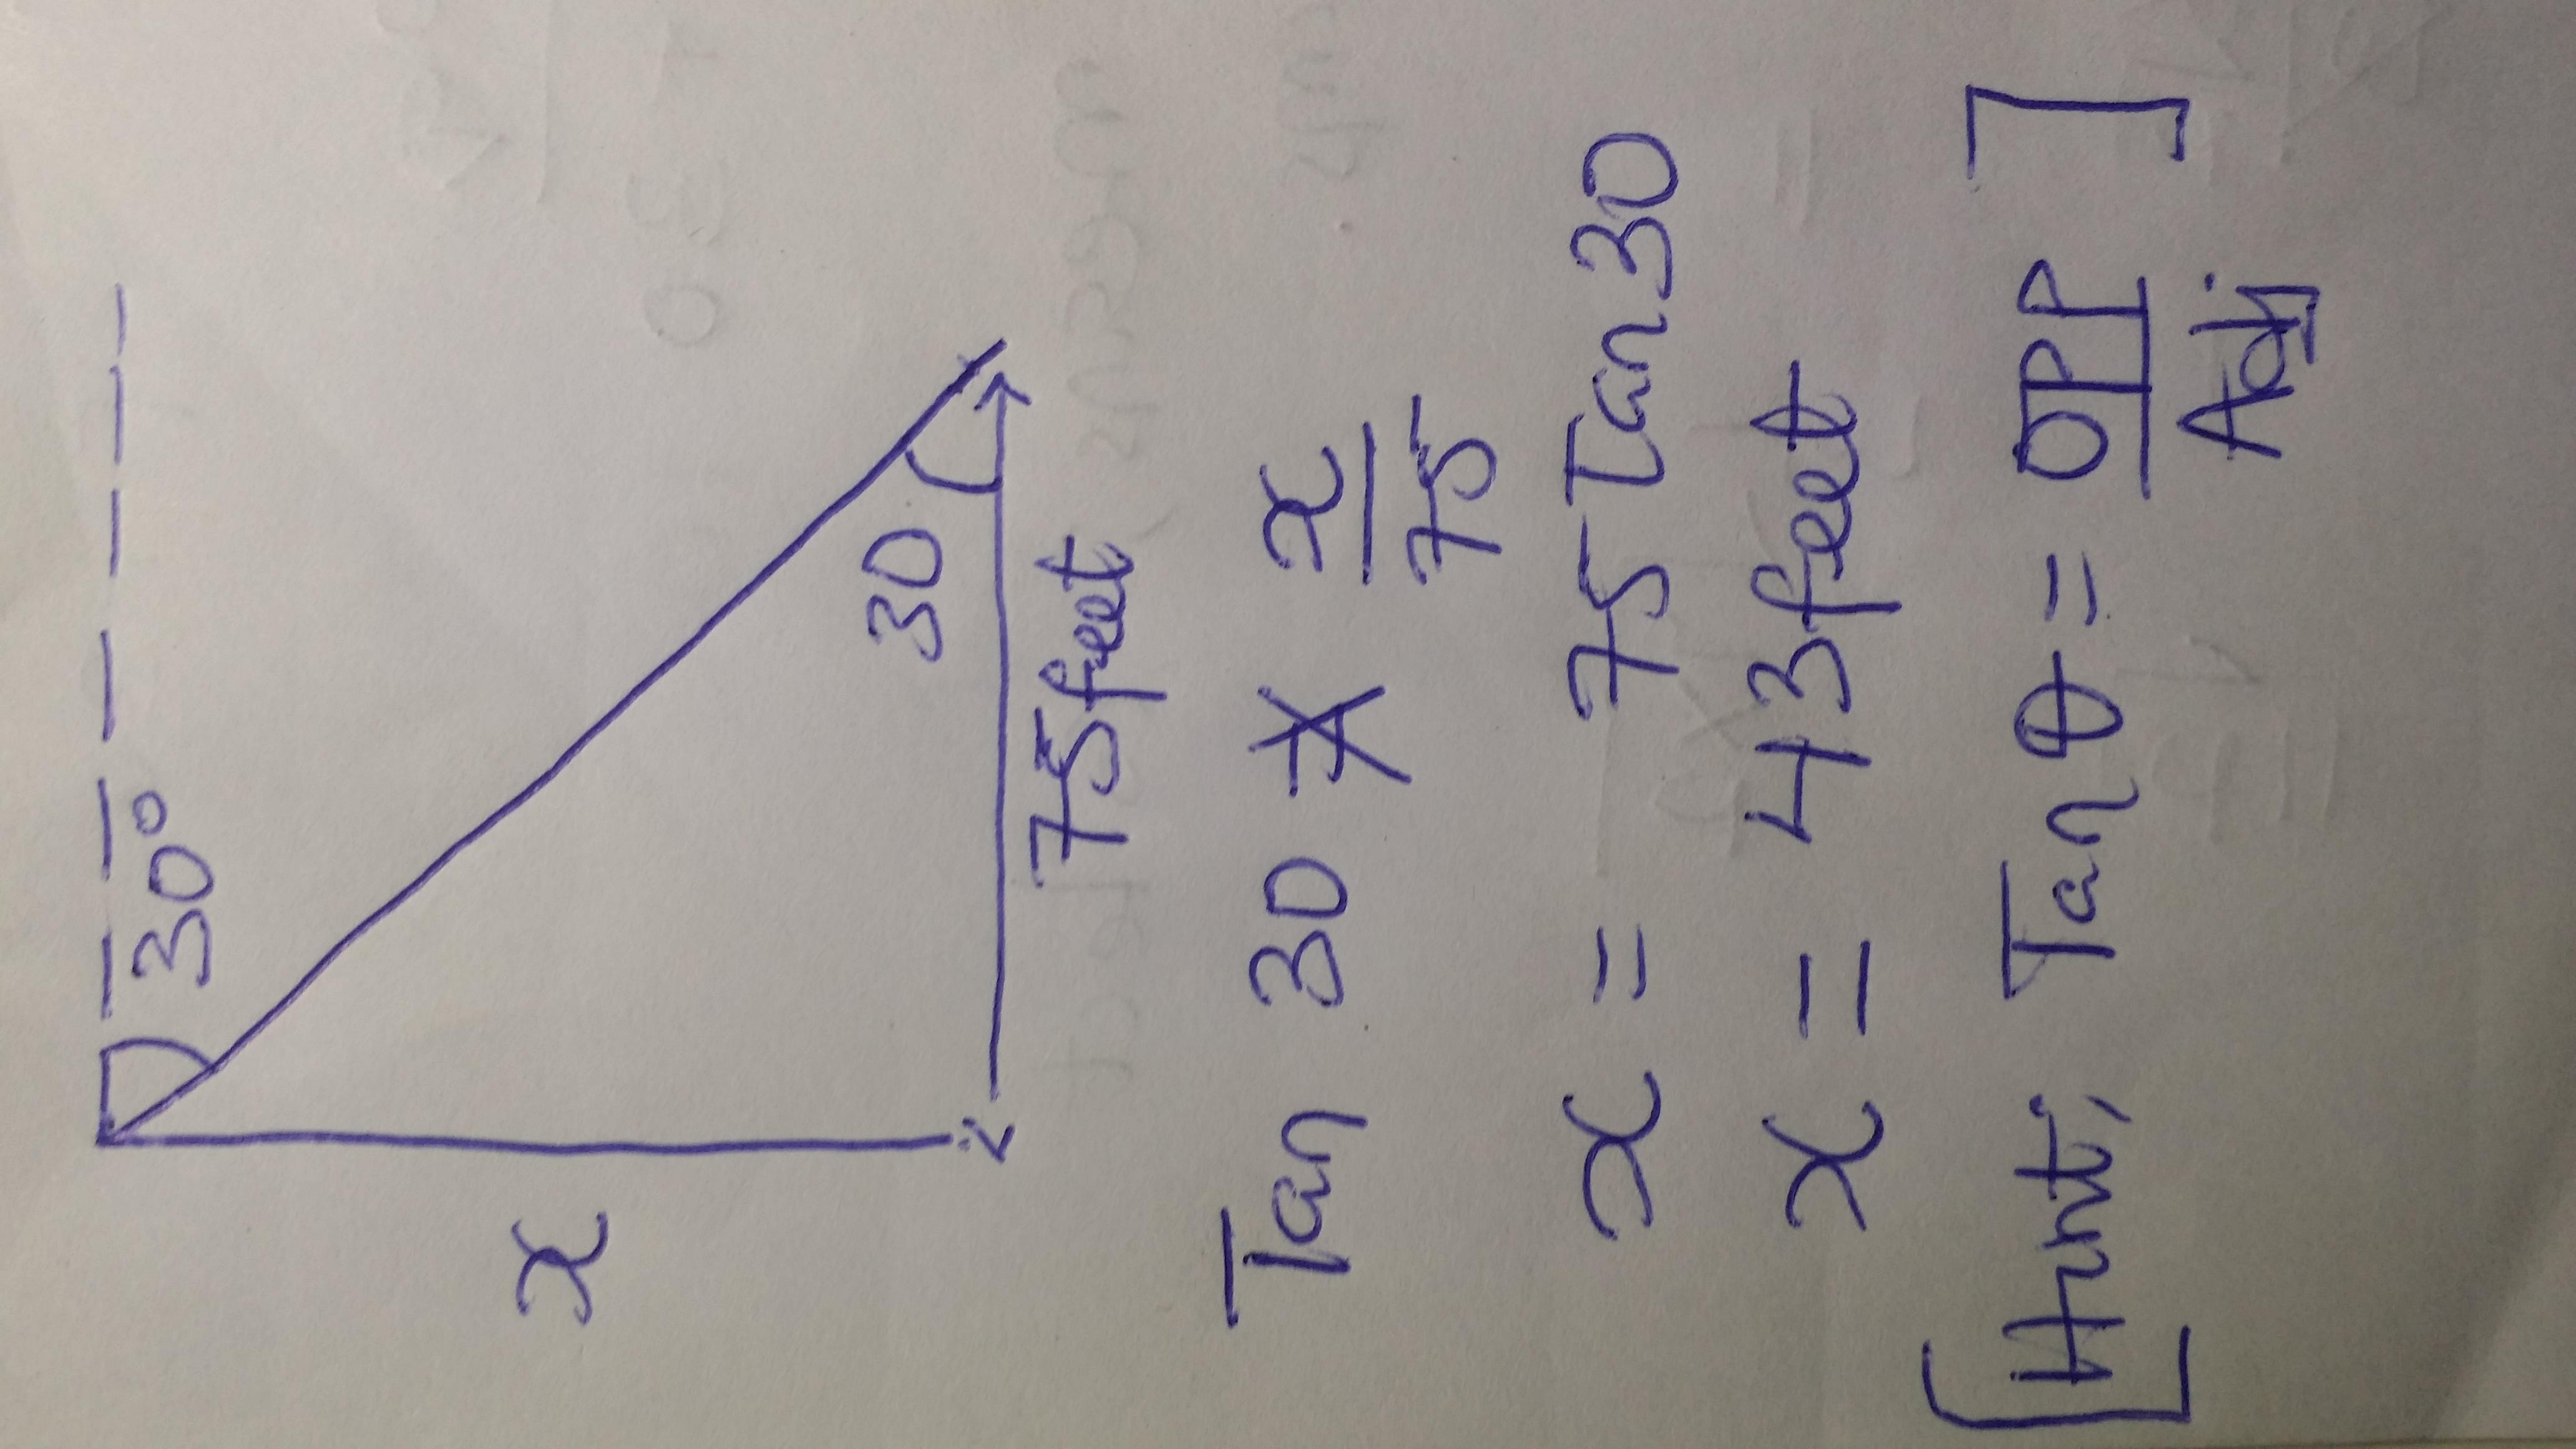 30°
x
30
75feet
Tan 30 x/75
x = 75 Tan 30
x = 43feet
[Hint; Tan θ = OPP/Adj]